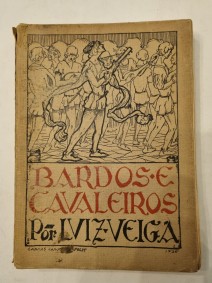 BARDOS·E·
CAVALEIROS
POR·LVIZ·VEIGA